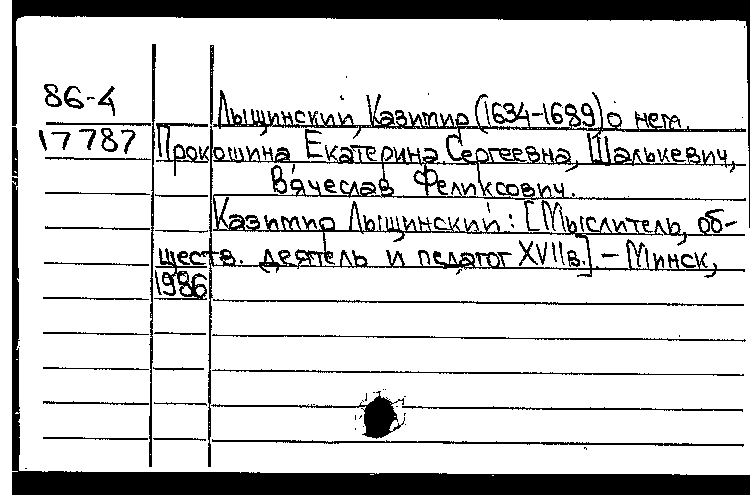 86-4
Лыщинский, Казимир (1634-1689) о нем.
17787 Прокошина Екатерина Сергеевна, Шалькевич,
Вячеслав Феликсович.
Казимир Лыщинский: [Мыслитель, об-
ществ. деятель и педагог XVII в.] – Минск,
1986